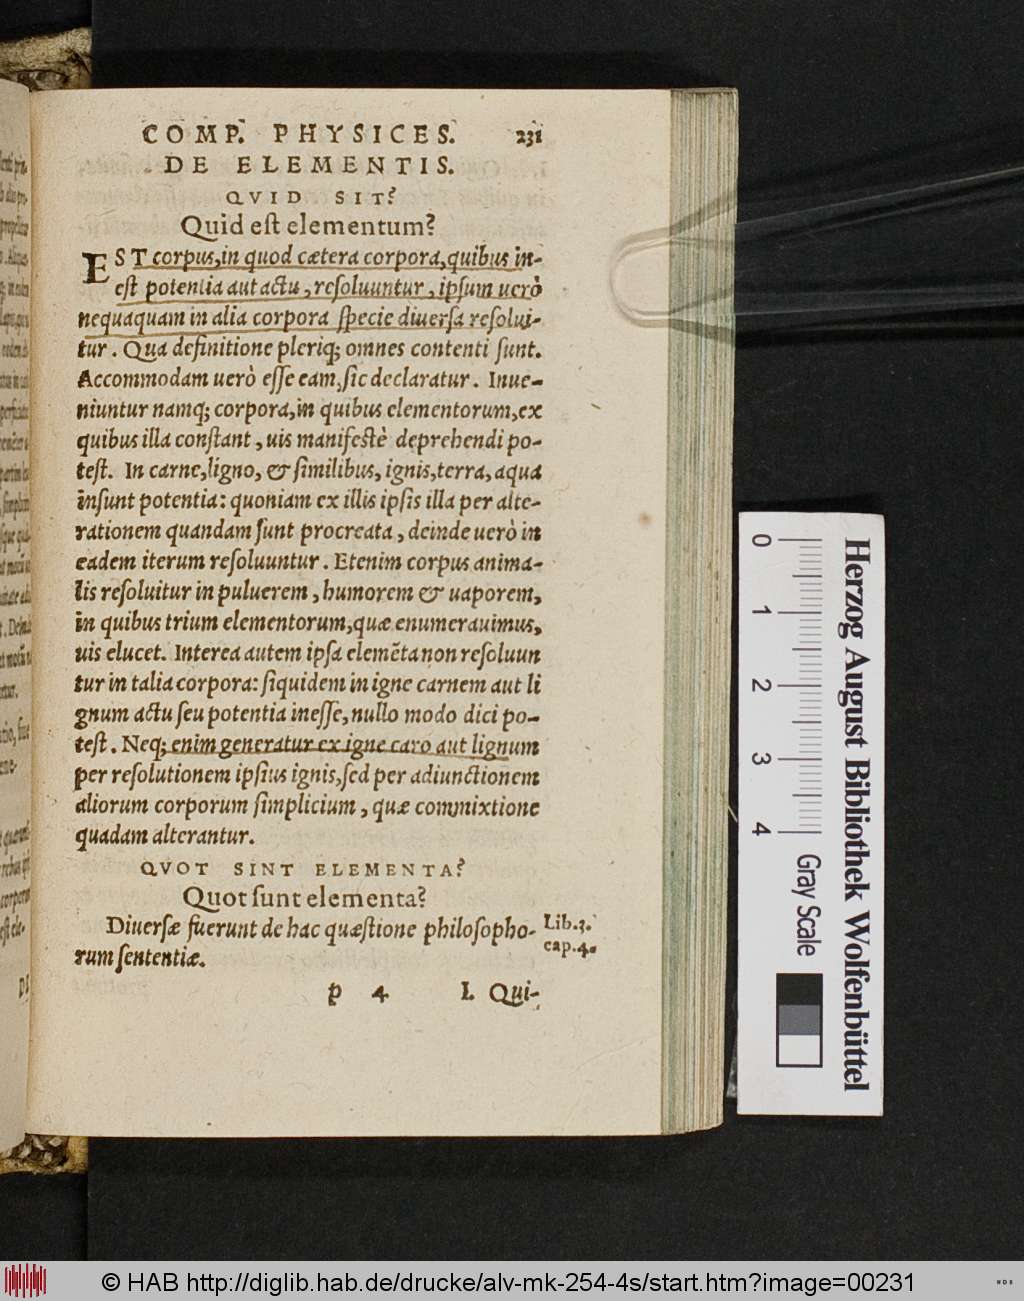 COMP. PHYSICES. 231
DE ELEMENTIS.
QVID SIT?
Quid eſt elementum?
EST corpus, in quod cætera corpora, quibus in-
eſt potentia aut actu, reſoluuntur, ipſum uerò
nequaquam in alia corpora ſpecie diuerſa reſolui-
tur. Qua definitione pleriq; omnes contenti ſunt.
Accommodam uerò eſſe eam, ſic declaratur. Inue-
niuntur namq; corpora, in quibus elementorum, ex
quibus illa conſtant, uis manifeſtè deprehendi po-
teſt. In carne, ligno, & ſimilibus, ignis, terra, aqua
inſunt potentia: quoniam ex illis ipſis illa per alte-
rationem quandam ſunt procreata, deinde uerò in
eadem iterum reſoluuntur. Etenim corpus anima-
lis reſoluitur in puluerem, humorem & uaporem,
in quibus trium elementorum, quæ enumerauimus,
uis elucet. Interea autem ipſa elemēta non reſoluun
tur in talia corpora: ſiquidem in igne carnem aut li
gnum actu ſeu potentia ineſſe, nullo modo dici po-
teſt. Neq; enim generatur ex igne caro aut lignum
per reſolutionem ipſius ignis, ſed per adiunctionem
aliorum corporum ſimplicium, quæ commixtione
quadam alterantur.
QVOT SINT ELEMENTA?
Quot ſunt elementa?
Diuerſæ fuerunt de hac quæſtione philoſopho-
rum ſententiæ.
Lib.3.
cap.4.
p 4 I. Qui-
0 1 2 3 4
Gray Scale
Herzog August Bibliothek Wolfenbüttel
© HAB http://diglib.hab.de/drucke/alv-mk-254-4s/start.htm?image=00231